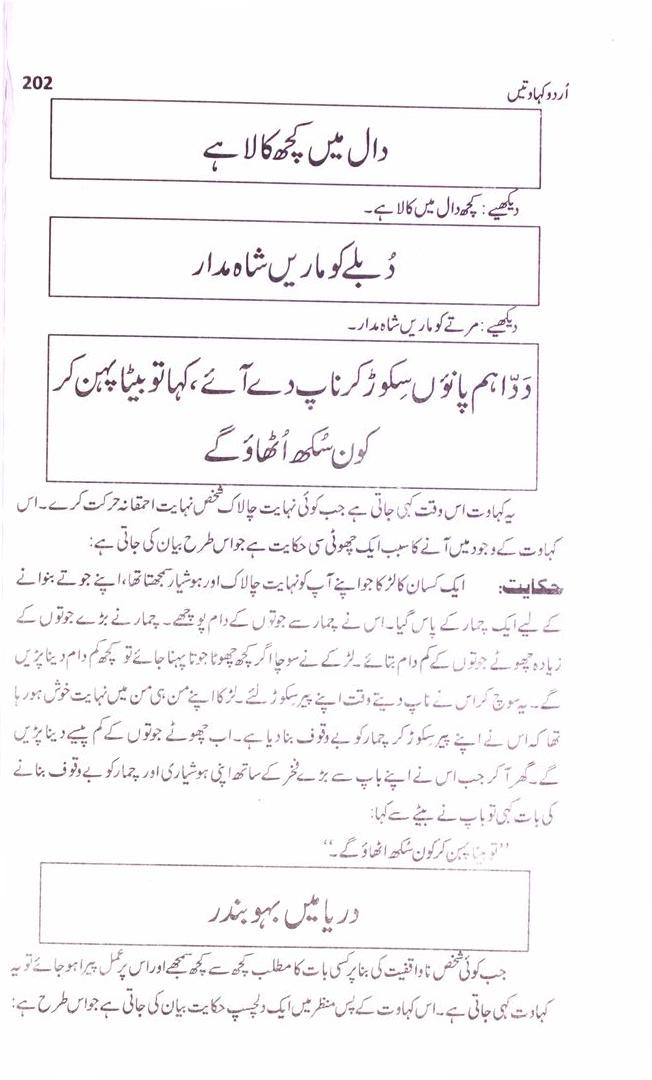 اُردو کہاوتیں
202
دال میں کچھ کالا ہے
دیکھیے: کچھ دال میں کالا ہے۔
دُبلے کو ماریں شاہ مدار
دیکھیے: مرتے کو ماریں شاہ مدار۔
دَدّا ہم پانوٗں سِکوڑ کر ناپ دے آئے، کہا تو بیٹا پہن کر
کون سُکھ اُٹھاؤ گے
یہ کہاوت اس وقت کہی جاتی ہے جب کوئی نہایت چالاک شخص نہایت احمقانہ حرکت کرے۔ اس
کہاوت کے وجود میں آنے کا سبب ایک چھوٹی سی حکایت ہے جو اس طرح بیان کی جاتی ہے:
حکایت: ایک کسان کا لڑکا جو اپنے آپ کو نہایت چالاک اور ہوشیار سمجھتا تھا، اپنے جوتے بنوانے
کے لیے ایک چمار کے پاس گیا۔ اس نے چمار سے جوتوں کے دام پوچھے۔ چمار نے بڑے جوتوں کے
زیادہ چھوٹے جوتوں کے کم دام بتائے۔ لڑکے نے سوچا اگر کچھ چھوٹا جوتا پہنا جائے تو کچھ کم دام دینا پڑیں
گے۔ یہ سوچ کر اس نے ناپ دیتے وقت اپنے پیر سِکوڑ لئے۔ لڑکا اپنے من ہی من میں نہایت خوش ہو رہا
تھا کہ اس نے اپنے پیر سِکوڑ کر چمار کو بے وقوف بنا دیا ہے۔ اب چھوٹے جوتوں کے کم پیسے دینا پڑیں
گے۔ گھر آ کر جب اس نے اپنے باپ سے بڑے فخر کے ساتھ اپنی ہوشیاری اور چمار کو بے وقوف بنانے
کی بات کہی تو باپ نے بیٹے سے کہا:
’’تو بیٹا پہن کر کون سُکھ اٹھاؤ گے۔‘‘
دریا میں بہو بندر
جب کوئی شخص ناواقفیت کی بنا پر کسی بات کا مطلب کچھ سے کچھ سمجھے اور اس پر عمل پیرا ہو جائے تو یہ
کہاوت کہی جاتی ہے۔ اس کہاوت کے پس منظر میں ایک دلچسپ حکایت بیان کی جاتی ہے جو اس طرح ہے: